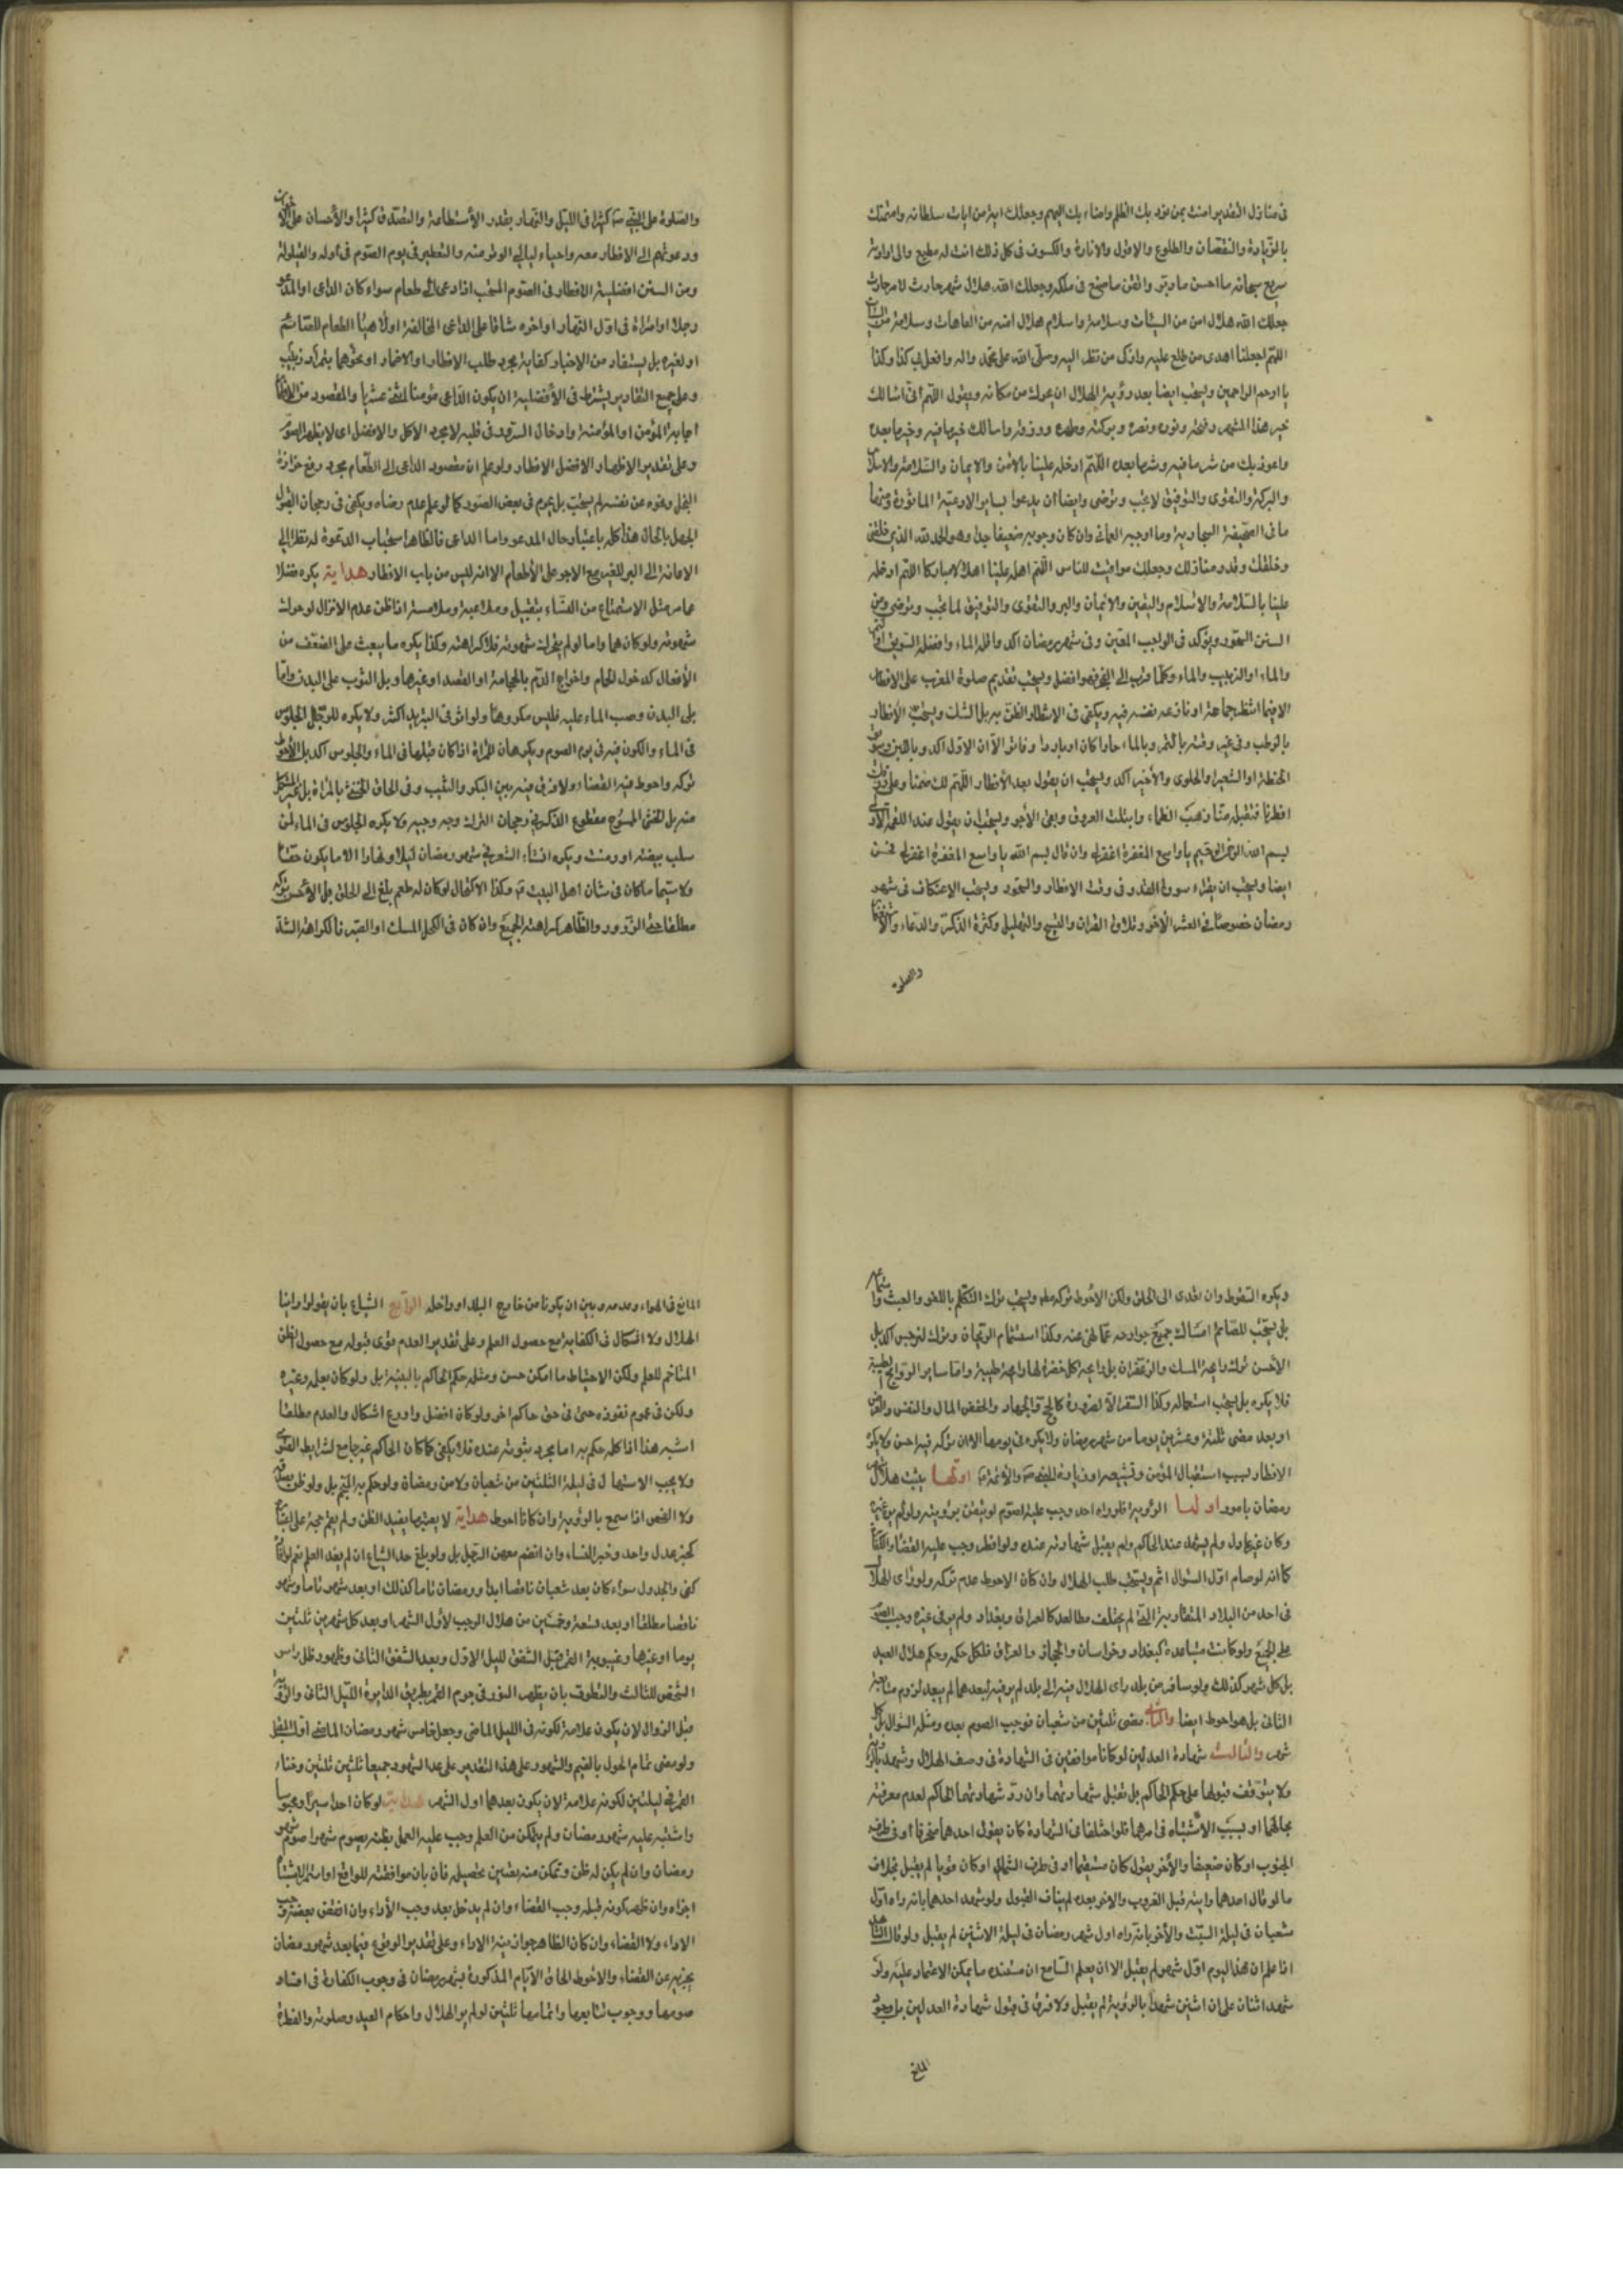 في منازل التقدير امنت بمن نور بك الظلم واضاء بك البهم وجعلك اية من ايات سلطانه وامتهنك
بالزيادة والنقصان والطلوع والافول والانارة والكسوف في كل ذلك انت له مطيع والى ارادته
سريع سبحانه ما احسن ما دبر واتقن ما صنع في ملكه وجعلك الله هلال شهر حادث لامر حادث
جعلك الله هلال امن من السيئات وسلامة واسلام هلال امنه من العاهات وسلامة من السيئات
اللهم اجعلنا اهدى من طلع عليه وازكى من نظر اليه وصلى الله على محمد واله وافعل بي كذا وكذا
يا ارحم الراحمين ويستحب ايضا بعد رؤية الهلال ان يحرك من مكانه ويقول اللهم اني اسالك
خير هذا الشهر وفتحه ونوره ونصره وبركته وطهره ورزقه واسالك خير ما فيه وخير ما بعده
واعوذ بك من شر ما فيه وشر ما بعده اللهم ادخله علينا بالامن والايمان والسلامة والاسلام
والبركة والتقوى والتوفيق لا تحب وترضى وايضا ان يدعوا بساير الادعية الماثورة ومنها
ما في الصحيفة السجادية وما اوجبه العماني وان كان وجوبه ضعيفا جدا وهو الحمد لله الذي خلقني
وخلقك وقدر منازلك وجعلك مواقيت للناس اللهم اهله علينا اهلالا مباركا اللهم ادخله
علينا بالسلامة والاسلام واليقين والايمان والبر والتقوى والتوفيق لما تحب وترضى ومن
السنن السحور ويؤكد في الواجب المعين وفي شهر رمضان اكد واقله الماء وافضله السويق
والماء او الزبيب والماء وكلما قرب الى الفجر فهو افضل ويستحب تقديم صلوة المغرب على الافطار
الا فيما انتظر جماعة او نازعه نفسه فيه ويكفي في الانتظار الظن به بل الشك ويستحب الافطار
بالرطب وفي غير وقته بالتمر وبالماء حارا كان او باردا وفاتر الا ان الاول اكد وباللبن وسويق
الحنطة او الشعير والحلوى والاخير اكد ويستحب ان يقول بعد الافطار اللهم لك صمنا وعلى رزقك
افطرنا فتقبله منا ذهب الظماء وابتلت العروق وبقي الأجر ويستحب ان يقول عند اللقمة الاولى
بسم الله الرحمن الرحيم يا واسع المغفرة اغفر لي وان قال بسم الله يا واسع المغفرة اغفر لي فحسن
ايضا ويستحب ان يقراء سورة القدر في وقت الافطار والسحور ويستحب الاعتكاف في شهر
رمضان خصوصا في العشر الاخر وتلاوة القران والتسبيح والتهليل وكثرة الذكر والدعاء
والصلوة
والصلوة على النبي ص كثيرا في الليل والنهار بقدر الأستطاعة والتصدق كثيرا والأحسان على
ودعوتهم الى الافطار معه واحياء ليالي الوتر منه والتعطير في يوم الصوم في اوله والقيلولة
ومن السنن افضلية الافطار في الصوم المستحب اذا دعي الى طعام سواء كان الداعي او المدعو
رجلا او امراة في اول النهار او اخره شاقا على الداعي المخالفة او لا هيأ الطعام للصائم
او لغيره بل يستفاد من الاخبار كفاية مجرد طلب الافطار او الاضمار او نحوهما
وعلى جميع التقادير يشترط في الأفضلية ان يكون الداعي مؤمنا اثني عشريا والمقصود من الافطار
اجابة المؤمن او المؤمنة وادخال السرور في قلبه لا مجرد الاكل والافضل اي لا يظهر الصوم
وعلى تقدير الاظهار الافضل الافطار ولو علم ان مقصود الداعي الى الطعام مجرد رفع حزازة
البخل ونحوه عن نفسه لم يستحب بل يحرم في بعض الصور كما لو علم عدم رضاه ويكفي في رجحان القبول
الجهل بالحال هذا كله باعتبار حال المدعو واما الداعي فالظاهر استحباب الدعوة له نظرا الى
الاعانة الى البر للغير مع الاجر على الأطعام الا انه ليس من باب الافطار هداية يكره فضلا
عما مر مثل الاستمتاع من النساء بتقبيل وملاعبة وملامسة اذا ظن عدم الانزال لو حركت
شهوته ولو كان هما واما لو لم يتحرك شهوته فلا كراهة وكذا يكره ما يبعث على الضعف من
الأفعال كدخول الحمام واخراج الدم بالحجامة او الفصد او غيرها وبل الثوب على البدن واما
بل البدن وصب الماء عليه فليس مكروها ولو اثر في التبريد اكثر ولا يكره للرجل الجلوس
في الماء والكون فيه في يوم الصوم ويكرهان للمراة اذا كان قبلها في الماء والجلوس اكد بل الأحوط
تركه واحوط فيه القضاء ولا فرق فيه بين البكر والثيب وفي الحاق الخنثى بالمراة
منه بل الخنثى الممسوح مقطوع الذكر في رجحان الترك وجه وجيه ولا يكره الجلوس في الماء لمن
سلب بيضته او رضت ويكره انشاد الشعر في شهر رمضان ليلا ونهارا الا ما يكون حقا
ولا سيما ما كان في شان اهل البيت ع وكذا الاكتحال لو كان له طعم بلغ الى الحلق بل الأحسن تركه
مطلقا حتى الذرور والظاهر كراهة الجميع وان كان في الكحل المسك او الصبر فالكراهة اشد
ويكره السقوط وان لم يتعدى الى الحلق ولكن الاحوط تركه معه ويستحب ترك التكلم باللغو والعبث
بل يستحب للصائم امساك جميع جوارحه عما نهي عنه وكذا استشمام الريحان وترك النرجس اكد بل
الأحسن ترك رائحة المسك والزعفران بل رائحة كل خضرة لها رائحة طيبة واما ساير الروايح الطيبة
فلا يكره بل يستحب استعماله وكذا السفر الا لضرورة كالحج والجهاد والحفظ المال والنفس والعرض
او بعد مضى ثلثة وعشرين يوما من شهر رمضان ولا يكره في يومها الا ان تركه فيه احسن ولا يكره
الافطار بسبب استقبال المؤمن وتشييعه او زيارة النبي ص والائمة ع
رمضان بامور اولها الرؤية فلو راه احد وجب عليه الصوم لو تيقن برؤيته ولو لم يره غيره
وكان غير عادل ولم يشهد عند الحاكم ولم يقبل شهادته عنده ولو افطر وجب عليه القضاء والكفارة
كما انه لو صام اول الشوال اثم ويستحب طلب الهلال وان كان الاحوط عدم تركه ولو راى الهلال
في احد من البلاد المتقاربة التي لم يختلف مطالعه كالعراق وبغداد ولم ير في غيره وجب الصوم
على الجميع ولو كانت متباعدة كبغداد وخراسان والحجاز والعراق فلكل حكمه وحكم هلال العيد
بل كل شهر كذلك ولو سافر من بلد راى الهلال فيه الى بلد لم ير فيه لبعدهما لم يبعد لزوم متابعة
الثاني بل هو احوط ايضا والثاني مضى ثلثين من شعبان فوجب الصوم بعده ومثله الشوال بل كل
شهر والثالث شهادة العدلين لو كانا موافقين في الشهادة في وصف الهلال
ولا يتوقف قبولها على حكم الحاكم بل تقبل شهادتهما وان رد شهادتهما الحاكم لعدم معرفته
بحالهما او بسبب الأشتباه في امرهما فلو اختلفا في الشهادة كان يقول احدهما منحرفا او في طرف
الجنوب او كان ضعيفا والأخر يقول كان مستقيما او في طرف الشمال او كان قويا لم يقبل بخلاف
ما لو قال احدهما رايته قبل الغروب والاخر بعده لم يناف القبول ولو شهد احدهما بانه راه اول
شعبان في ليلة السبت والأخر بانه راه اول شهر رمضان في ليلة الاثنين لم يقبل ولو قال
انا اعلم ان هذا اليوم اول شهر لم يقبل الا ان يعلم السامع ان مستنده ما يمكن الاعتماد عليه ولو
شهد اثنان على ان اثنين شهدا بالرؤية لم يقبل ولا فرق في قبول شهادة العدلين بل وجود
المانع
المانع في الهواء وعدمه وبين ان يكونا من خارج البلد او داخله الرابع الشياع بان يقولوا راينا
الهلال ولا اشكال في الكفاية مع حصول العلم وعلى تقدير العدم قوى قبوله مع حصول الظن
المتاخم للعلم ولكن الاحتياط ما امكن حسن ومثله حكم الحاكم بالبينة بل ولو كان بعلمه وغيره
ولكن في عموم نفوذه حتى في حق حاكم اخر ولو كان افضل واورع اشكال والعدم مطلقا
اشبه هذا اذا كان حكم به اما مجرد ثبوته عنده فلا يكفي كما كان الحاكم غير جامع لشرايط الفتوى
ولا يجب الاستهلال في ليلة الثلثين من شعبان ولا من رمضان ولو حكم به المنجم بل ولو ظن بصدقه
ولا الفحص اذا سمع بالرؤية وان كانا احوط هداية لا يعتبر ما يفيد الظن ولم يقم حجة على اعتباره
كخبر عدل واحد وخبر النساء وان انضم معهن الرجل بل ولو بلغ حد الشياع ان لم يفد العلم
كفى والجدول سواء كان بعد شعبان ناقصا ابدا ورمضان تاما كذلك او بعد شهر تاما وشهر
ناقصا مطلقا او بعد تسعة وخمسين من هلال الرجب لأول الشهر او بعد كل شهرين ثلثين
يوما او غيرها وغيبوبة القمر قبل الشفق لليل الاول وبعد الشفق الثاني وظهور ظل راس
الشخص للثالث والتطوق بان يظهر النور في جرم القمر بطريق الدايرة الليل الثاني
قبل الزوال لان يكون علامة لكونه في الليل الماضي وجعل خامس شهر رمضان الماضي اول المقبل
ولو مضى تمام الحول بالغيم والشهور على هذا التقدير على عد الشهور جميعا ثلثين ثلثين وخفاء
القمر في ليلتين لكونه علامة لان يكون بعدهما اول الشهر هداية لو كان احد اسيرا او محبوسا
واشتبه عليه شهر رمضان ولم يتمكن من العلم وجب عليه العمل بظنه بصوم شهرا
رمضان وان لم يكن له ظن وتمكن منه يتعين تحصيله فان بان موافقته للواقع او استمر الاشتباه
اجزاه وان ظهر كونه قبله وجب القضاء وان لم يدخل بعد وجب الأداء وان اتفق بعضه
الاداء ولا القضاء وان كان الظاهر جواز نية الاداء وعلى تقدير الوقوع فيما بعد شهر رمضان
يجزيه عن القضاء والاحوط الحاق الأيام المذكورة بشهر رمضان في وجوب الكفارة في افساد
صومها ووجوب تتابعها واتمامها ثلثين لو لم ير الهلال واحكام العيد وصلوته والفطرة